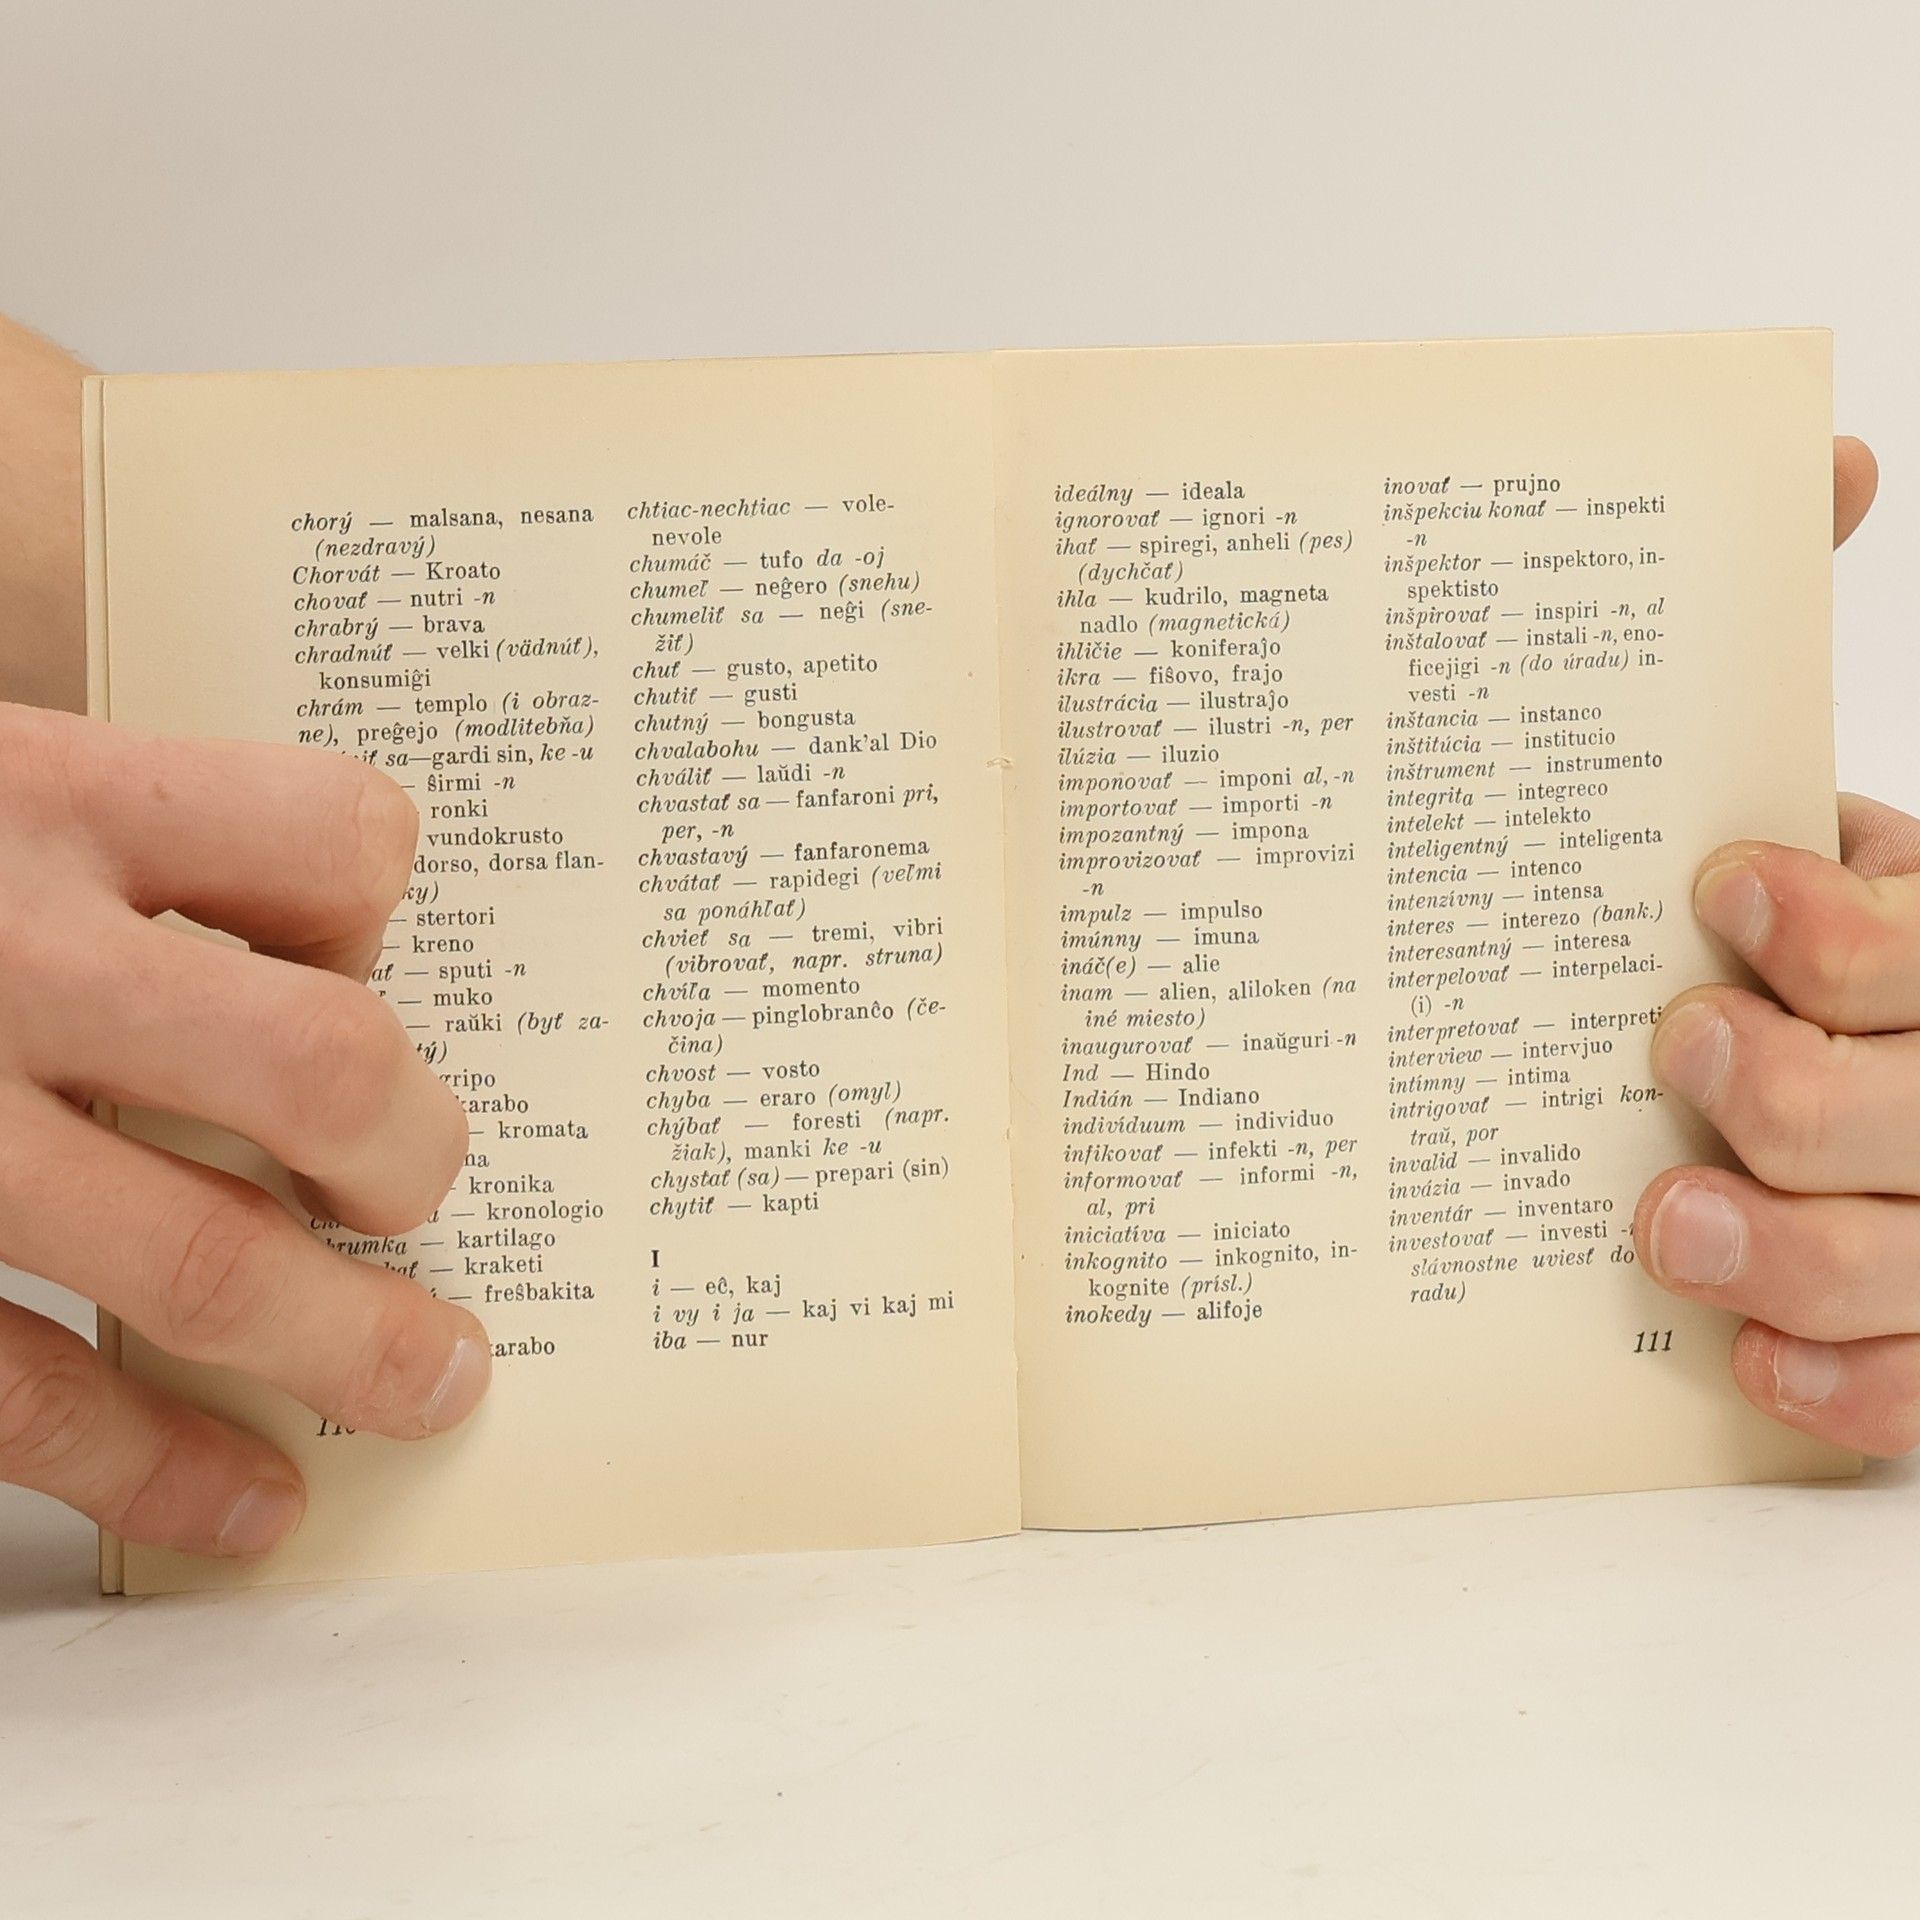 chorý — malsana, nesana
(nezdravý)
Chorvát — Kroato
chovať — nutri -n
chrabrý — brava
chradnúť — velki (vädnúť),
konsumiĝi
chrám — templo (i obraz-
ne), preĝejo (modlitebňa)
sa—gardi sin, ke -u
— ŝirmi -n
ronki
vundokrusto
dorso, dorsa flan-
— stertori
— kreno
— sputi -n
— muko
— raŭki (byť za-
gripo
karabo
— kromata
— kronika
— kronologio
— kartilago
— kraketi
— freŝbakita
karabo
chtiac-nechtiac — vole-
nevole
chumáč — tufo da -oj
chumeľ — neĝero (snehu)
chumeliť sa — neĝi (sne-
žiť)
chuť — gusto, apetito
chutiť — gusti
chutný — bongusta
chvalabohu — dank'al Dio
chváliť — laŭdi -n
chvastať sa — fanfaroni pri,
per, -n
chvastavý — fanfaronema
chvátať — rapidegi (veľmi
sa ponáhľať)
chvieť sa — tremi, vibri
(vibrovať, napr. struna)
chvíľa — momento
chvoja — pinglobranĉo (če-
čina)
chvost — vosto
chyba — eraro (omyl)
chýbať — foresti (napr.
žiak), manki ke -u
chystať (sa) — prepari (sin)
chytiť — kapti
I
i — eĉ, kaj
i vy i ja — kaj vi kaj mi
iba — nur
ideálny — ideala
ignorovať — ignori -n
ihať — spiregi, anheli (pes)
(dychčať)
ihla — kudrilo, magneta
nadlo (magnetická)
ihličie — koniferaĵo
ikra — fiŝovo, frajo
ilustrácia — ilustraĵo
ilustrovať — ilustri -n, per
ilúzia — iluzio
imponovať — imponi al, -n
importovať — importi -n
impozantný — impona
improvizovať — improvizi
-n
impulz — impulso
imúnny — imuna
ináč(e) — alie
inam — alien, aliloken (na
iné miesto)
inaugurovať — inaŭguri -n
Ind — Hindo
Indián — Indiano
indivíduum — individuo
infikovať — infekti -n, per
informovať — informi -n,
al, pri
iniciatíva — iniciato
inkognito — inkognito, in-
kognite (prísl.)
inokedy — alifoje
inovať — prujno
inšpekciu konať — inspekti
-n
inšpektor — inspektoro, in-
spektisto
inšpirovať — inspiri -n, al
inštalovať — instali -n, eno-
ficejigi -n (do úradu) in-
vesti -n
inštancia — instanco
inštitúcia — institucio
inštrument — instrumento
integrita — integreco
intelekt — intelekto
inteligentný — inteligenta
intencia — intenco
intenzívny — intensa
interes — interezo (bank.)
interesantný — interesa
interpelovať — interpelaci-
(i) -n
interpretovať — interpreti
interview — intervjuo
intímny — intima
intrigovať — intrigi kon-
traŭ, por
invalid — invalido
invázia — invado
inventár — inventaro
investovať — investi
slávnostne uviesť do
radu)
111